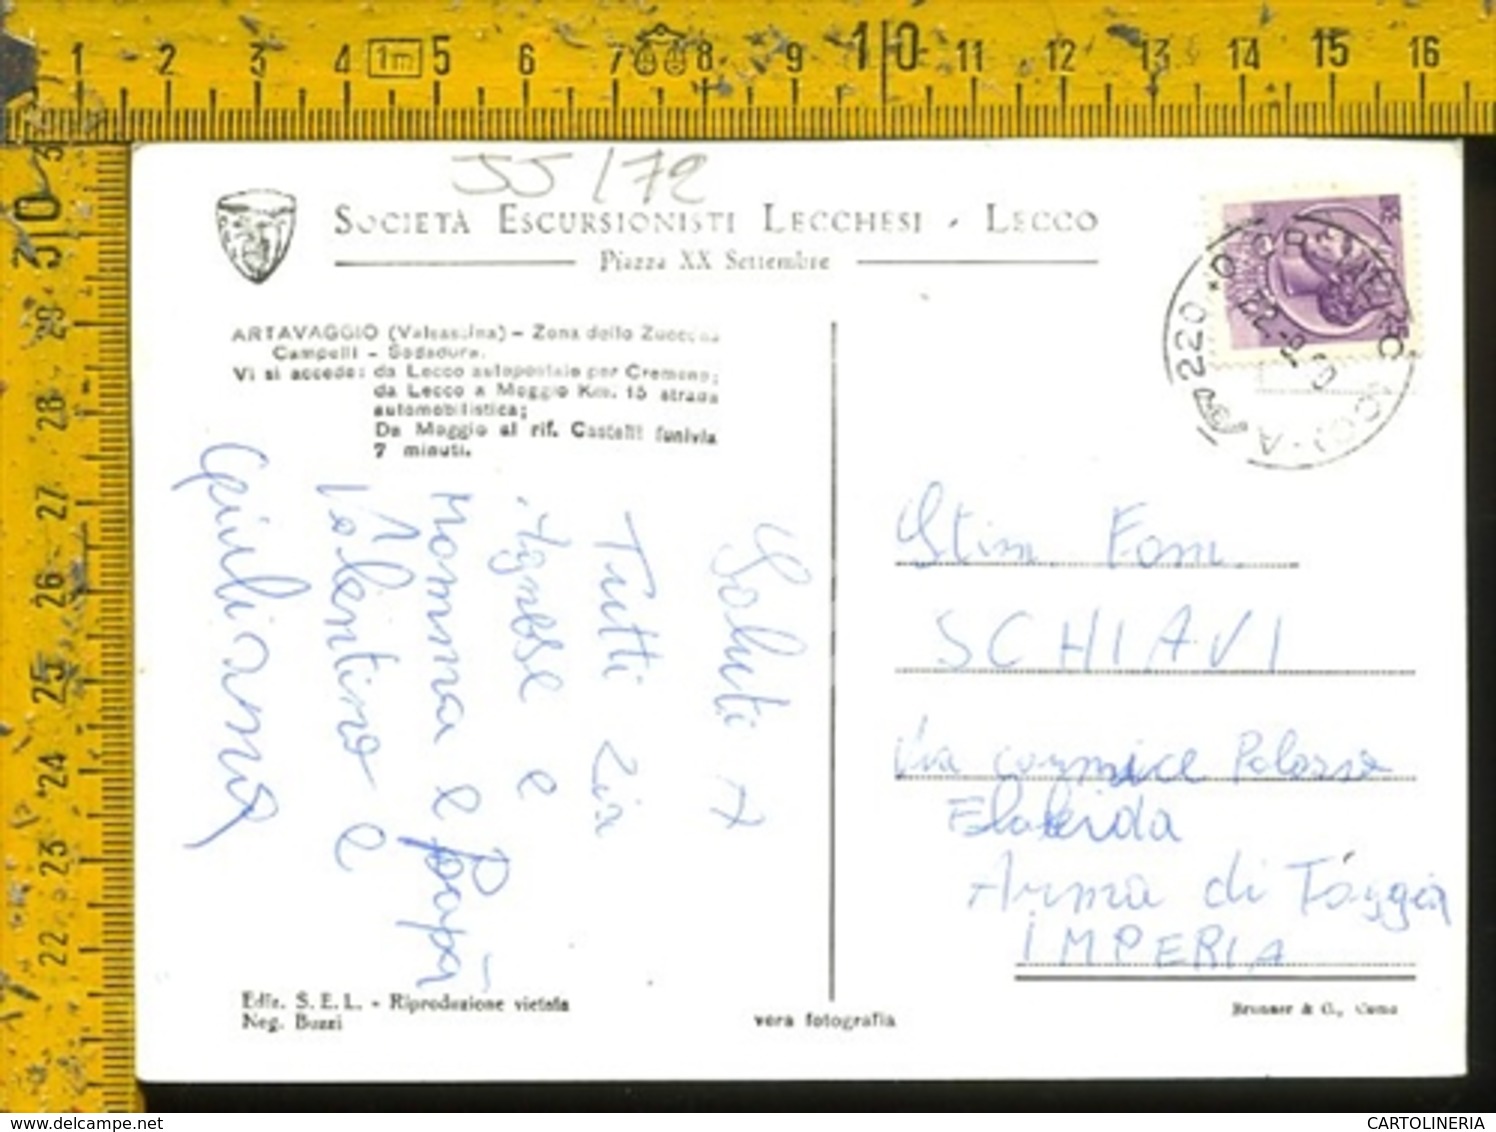 1 2 3 4 1m 5 6 7 8 9 10 11 12 13 14 15 16
30 29 28 27 26 25 24 23 22
55/72
SOCIETÀ ESCURSIONISTI LECCHESI - LECCO
Piazza XX Settembre
ARTAVAGGIO (Valsassina) - Zona dello Zuccone
Campelli - Sodadura.
Vi si accede: da Lecco autopostale per Cremeno;
da Lecco a Moggio Km. 15 strada
automobilistica;
Da Moggio al rif. Castelli funivia
7 minuti.
Saluti x
Tutti Zia
Agnese e
Mamma e Papà
Valentino e
Giuliana
220
22-8
Stim. Fam.
SCHIAVI
Via
Arma di Taggia
IMPERIA
Ediz. S. E. L. - Riproduzione vietata
Neg. Buzzi
vera fotografia
Brunner & C., Como
www.delcampe.net
CARTOLINERIA